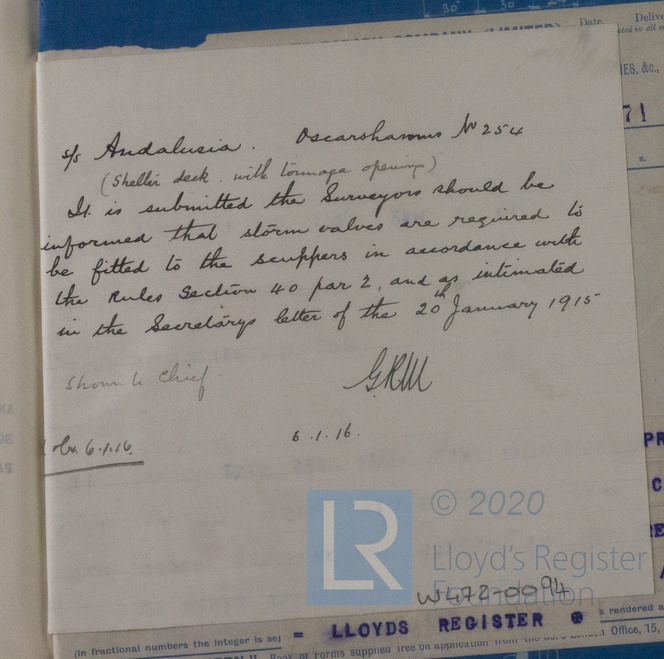 30" 30
COMPANY (LIMITED)
Date
Delive
IES, &c.,
71
s/s Andalusia. Oscarshamns No 254
(Shelter deck. with tonnage opening)
It is submitted the Surveyors should be
informed that storm valves are required to
be fitted to the scuppers in accordance with
the Rules Section 40 par 2, and as intimated
in the Secretarys letter of the 20th January 1915
Shown to Chief
GRM
6.1.16.
6.1.16.
PR
C
© 2020
LR
Lloyd's Register
Foundation
W472-0094
= LLOYDS REGISTER
s rendered a
(In fractional numbers the integer is sep
Forms supplied free on application from the
London Office, 15,